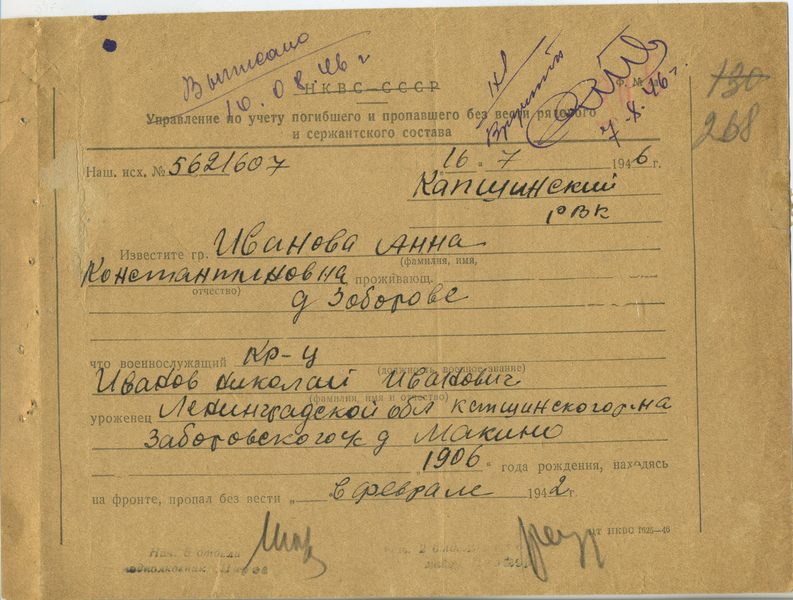 Выписано
10.08.46 г
7-8.46 г.
130
268
НКВС—СССР
Управление по учету погибшего и пропавшего без вести рядового
и сержантского состава
Наш. исх. № 5621607 "16" 7 1946 г.
Капшинский
РВК
Известите гр. Иванова Анна
(фамилия, имя,
Константиновна проживающ.
отчество)
д Заборове
что военнослужащий кр-ц
(должность, военное звание)
Иванов Николай Иванович
(фамилия, имя и отчество)
уроженец Ленинградской обл Капшинского р-на
Заборовского с/с д Макино
"1906" года рождения, находясь
на фронте, пропал без вести „ в феврале 1942 г.
НКВС 1625—46
Нач. 6 отдела
подполковник
2 отдела